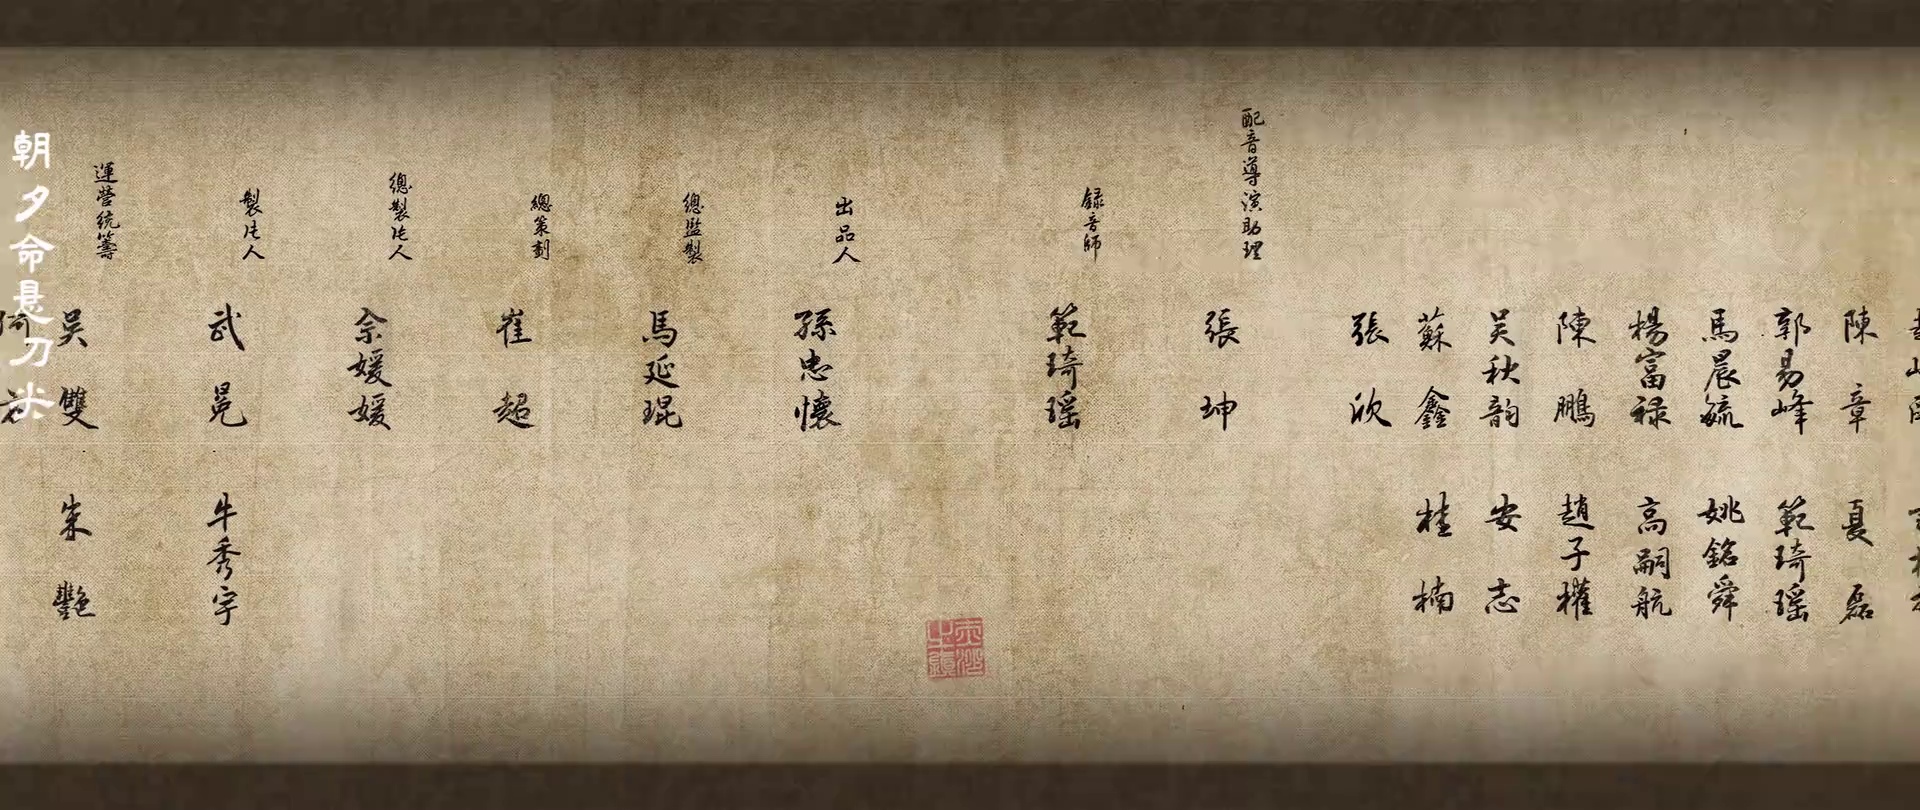 陳章
夏磊
郭易峰
範琦瑶
馬晨毓
姚銘舜
楊富禄
高嗣航
陳鵬
趙子權
吴秋韵
安志
蘇鑫
桂楠
張欣
配音導演助理
張坤
録音師
範琦瑶
出品人
孫忠懷
總監製
馬延琨
總策劃
崔超
總製片人
佘媛媛
製片人
武冕
牛秀宇
運營統籌
吴雙
朱艷
朝夕命悬刀米